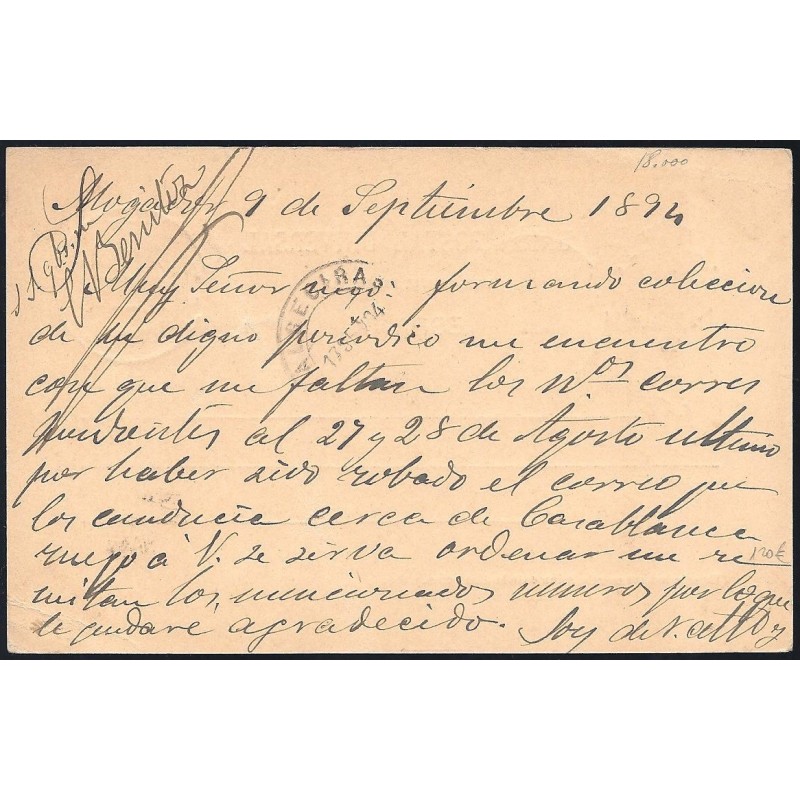 18.000
Mogador 9 de Septiembre 1894
Muy Señor mio: formando coleccion
de su digno periodico me encuentro
con que me faltan los nos corres
pondientes al 27 y 28 de Agosto ultimo
por haber sido robado el correo que
los conducia cerca de Casablanca
ruego á V. se sirva ordenar me re
mitan los mencionados numeros por lo que
le quedaré agradecido. Soy de V. atto y
Benitez
ALGECIRAS
17 94
120€